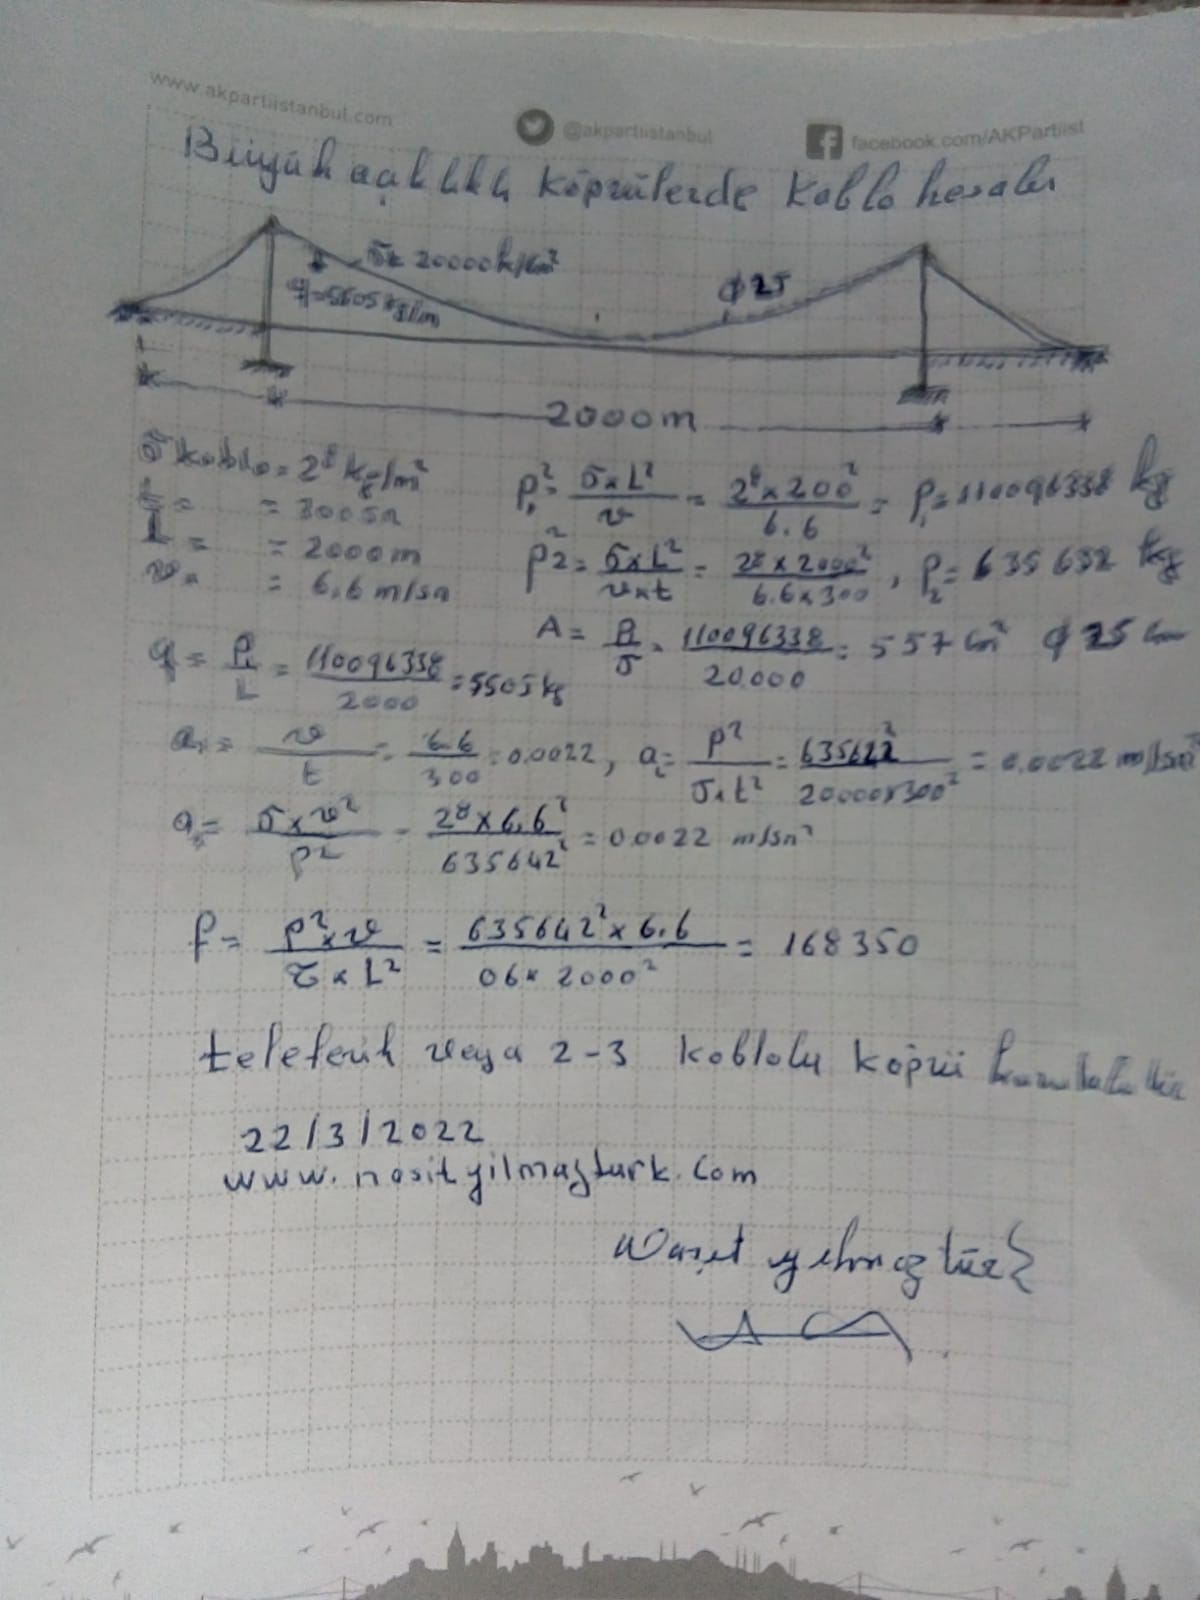 www.akpartiistanbul.com
@akpartiistanbul
facebook.com/AKPartiist
Büyük açıklıklı köprülerde Kablo hesabı
σ= 20000 k/cm²
q=5505 kg/m
φ25
2000m
σ kablo = 2⁸ kg/m²
t = = 300sn
L = = 2000m
v = = 6.6 m/sn
P₁² = σxL² / v = 2⁸x200² / 6.6 = P₁=110096338 kg
P2² = σxL² / vxt = 2⁸x2000² / 6.6x300, P₂= 635632 kg
A = P₁ / σ = 110096338 / 20.000 = 557 cm² φ 25 cm
q = P₁ / L = 110096338 / 2000 = 5505 kg
a₁ = v / t = 6.6 / 300 = 0.0022, a₂ = P² / σxt² = 635622² / 20000x300² = 0.0022 m/sn²
a₃ = σxv² / P² = 2⁸x6.6² / 635642² = 0.0022 m/sn²
f = P²xv / xL² = 635642²x6.6 / 06x2000² = 168350
teleferik veya 2-3 kablolu köprü
22/3/2022
www.nasityilmazturk.com
yılmaztürk